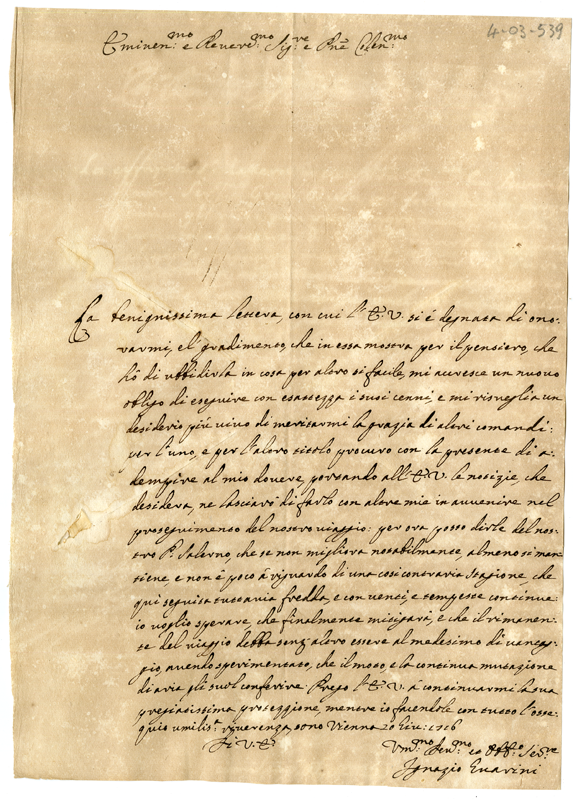 4-03-539
Eminen.mo e Revere.mo Sig.re e Pñe Colen.mo
La benignissima lettera, con cui l'E.V. si é degnata di ono=
rarmi, e l'gradimento, che in essa mostra per il pensiero, che
hó di ubbidirla in cosa per altro si facile, mi accresce un nuovo
obligo di eseguire con esattezza i suoi cenni, e mi risveglia un
desiderio piú vivo di meritarmi la grazia di altri comandi:
per l'uno, e per l'altro titolo procuro con la presente di a=
dempire al mio dovere, portando all'E.V. le notizie, che
desidera, ne lasciaró di farlo con altre mie in avvenire nel
proseguimento del nostro viaggio: per ora posso dirle del nos=
tro P. Salerno, che se non migliora notabilmente, almeno si man=
tiene e non é poco á riguardo di una cosi contraria stagione, che
qui seguita tuttavia fredda, e con venti, e tempeste continue:
io voglio sperare, che finalmente mitigará, e che il rimanen=
te del viaggio debba senz'altro essere al medesimo di vantag=
gio, avendo sperimentato, che il moto, e la continua mutazione
di aria gli suol conferire: Prego l'E.V. á continuarmi la sua
pregiatissima protezzione, mentre io facendole con tutto l'osse=
quio umilis.a riverenza, sono Vienna 20 Giu: 1716
Di V.E.
Vm.mo Dev.mo ed Obb.o Ser.re
Ignazio Guarini